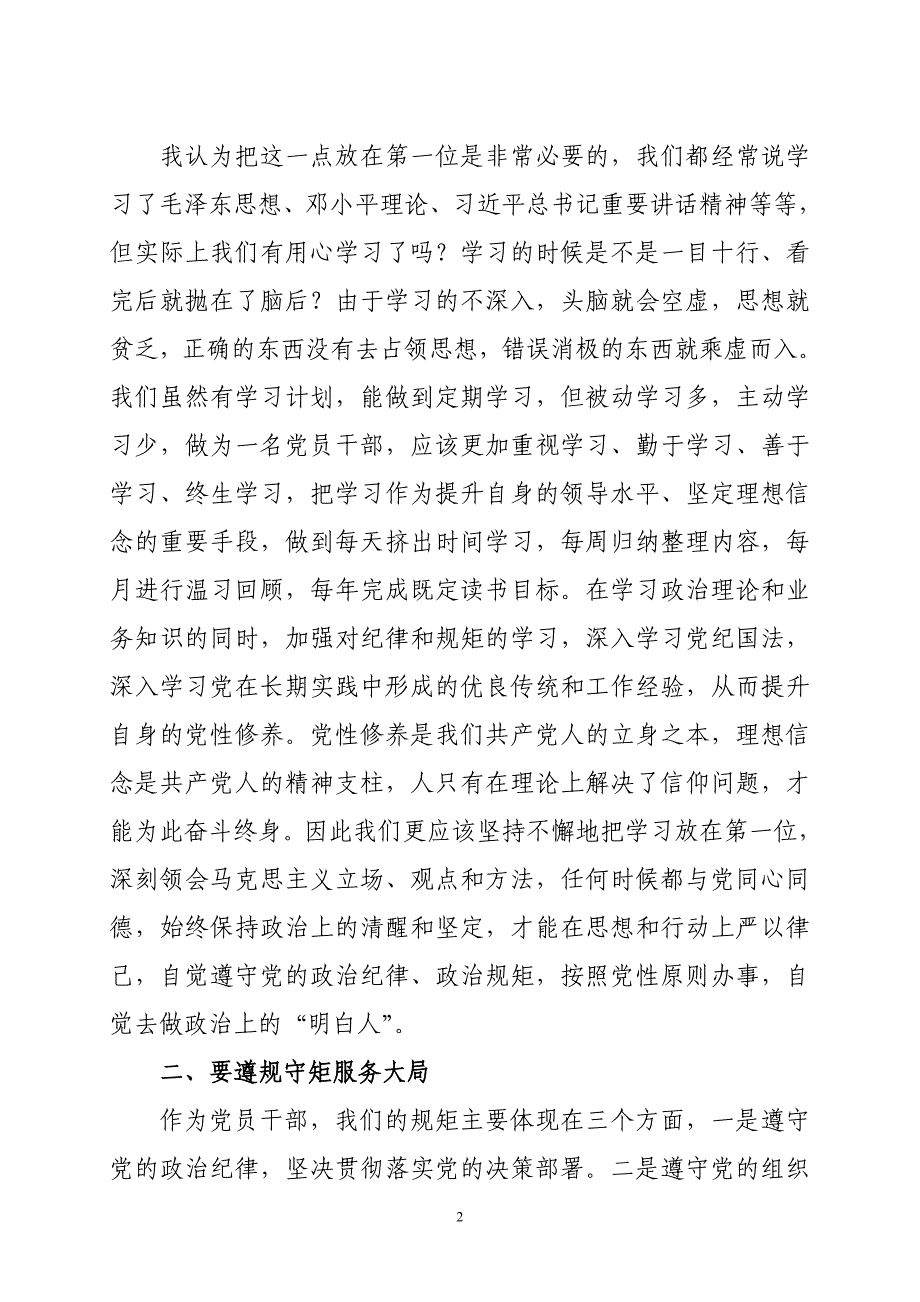 我认为把这一点放在第一位是非常必要的，我们都经常说学
习了毛泽东思想、邓小平理论、习近平总书记重要讲话精神等等，
但实际上我们有用心学习了吗？学习的时候是不是一目十行、看
完后就抛在了脑后？由于学习的不深入，头脑就会空虚，思想就
贫乏，正确的东西没有去占领思想，错误消极的东西就乘虚而入。
我们虽然有学习计划，能做到定期学习，但被动学习多，主动学
习少，做为一名党员干部，应该更加重视学习、勤于学习、善于
学习、终生学习，把学习作为提升自身的领导水平、坚定理想信
念的重要手段，做到每天挤出时间学习，每周归纳整理内容，每
月进行温习回顾，每年完成既定读书目标。在学习政治理论和业
务知识的同时，加强对纪律和规矩的学习，深入学习党纪国法，
深入学习党在长期实践中形成的优良传统和工作经验，从而提升
自身的党性修养。党性修养是我们共产党人的立身之本，理想信
念是共产党人的精神支柱，人只有在理论上解决了信仰问题，才
能为此奋斗终身。因此我们更应该坚持不懈地把学习放在第一位，
深刻领会马克思主义立场、观点和方法，任何时候都与党同心同
德，始终保持政治上的清醒和坚定，才能在思想和行动上严以律
己，自觉遵守党的政治纪律、政治规矩，按照党性原则办事，自
觉去做政治上的“明白人”。
二、要遵规守矩服务大局
作为党员干部，我们的规矩主要体现在三个方面，一是遵守
党的政治纪律，坚决贯彻落实党的决策部署。二是遵守党的组织
2